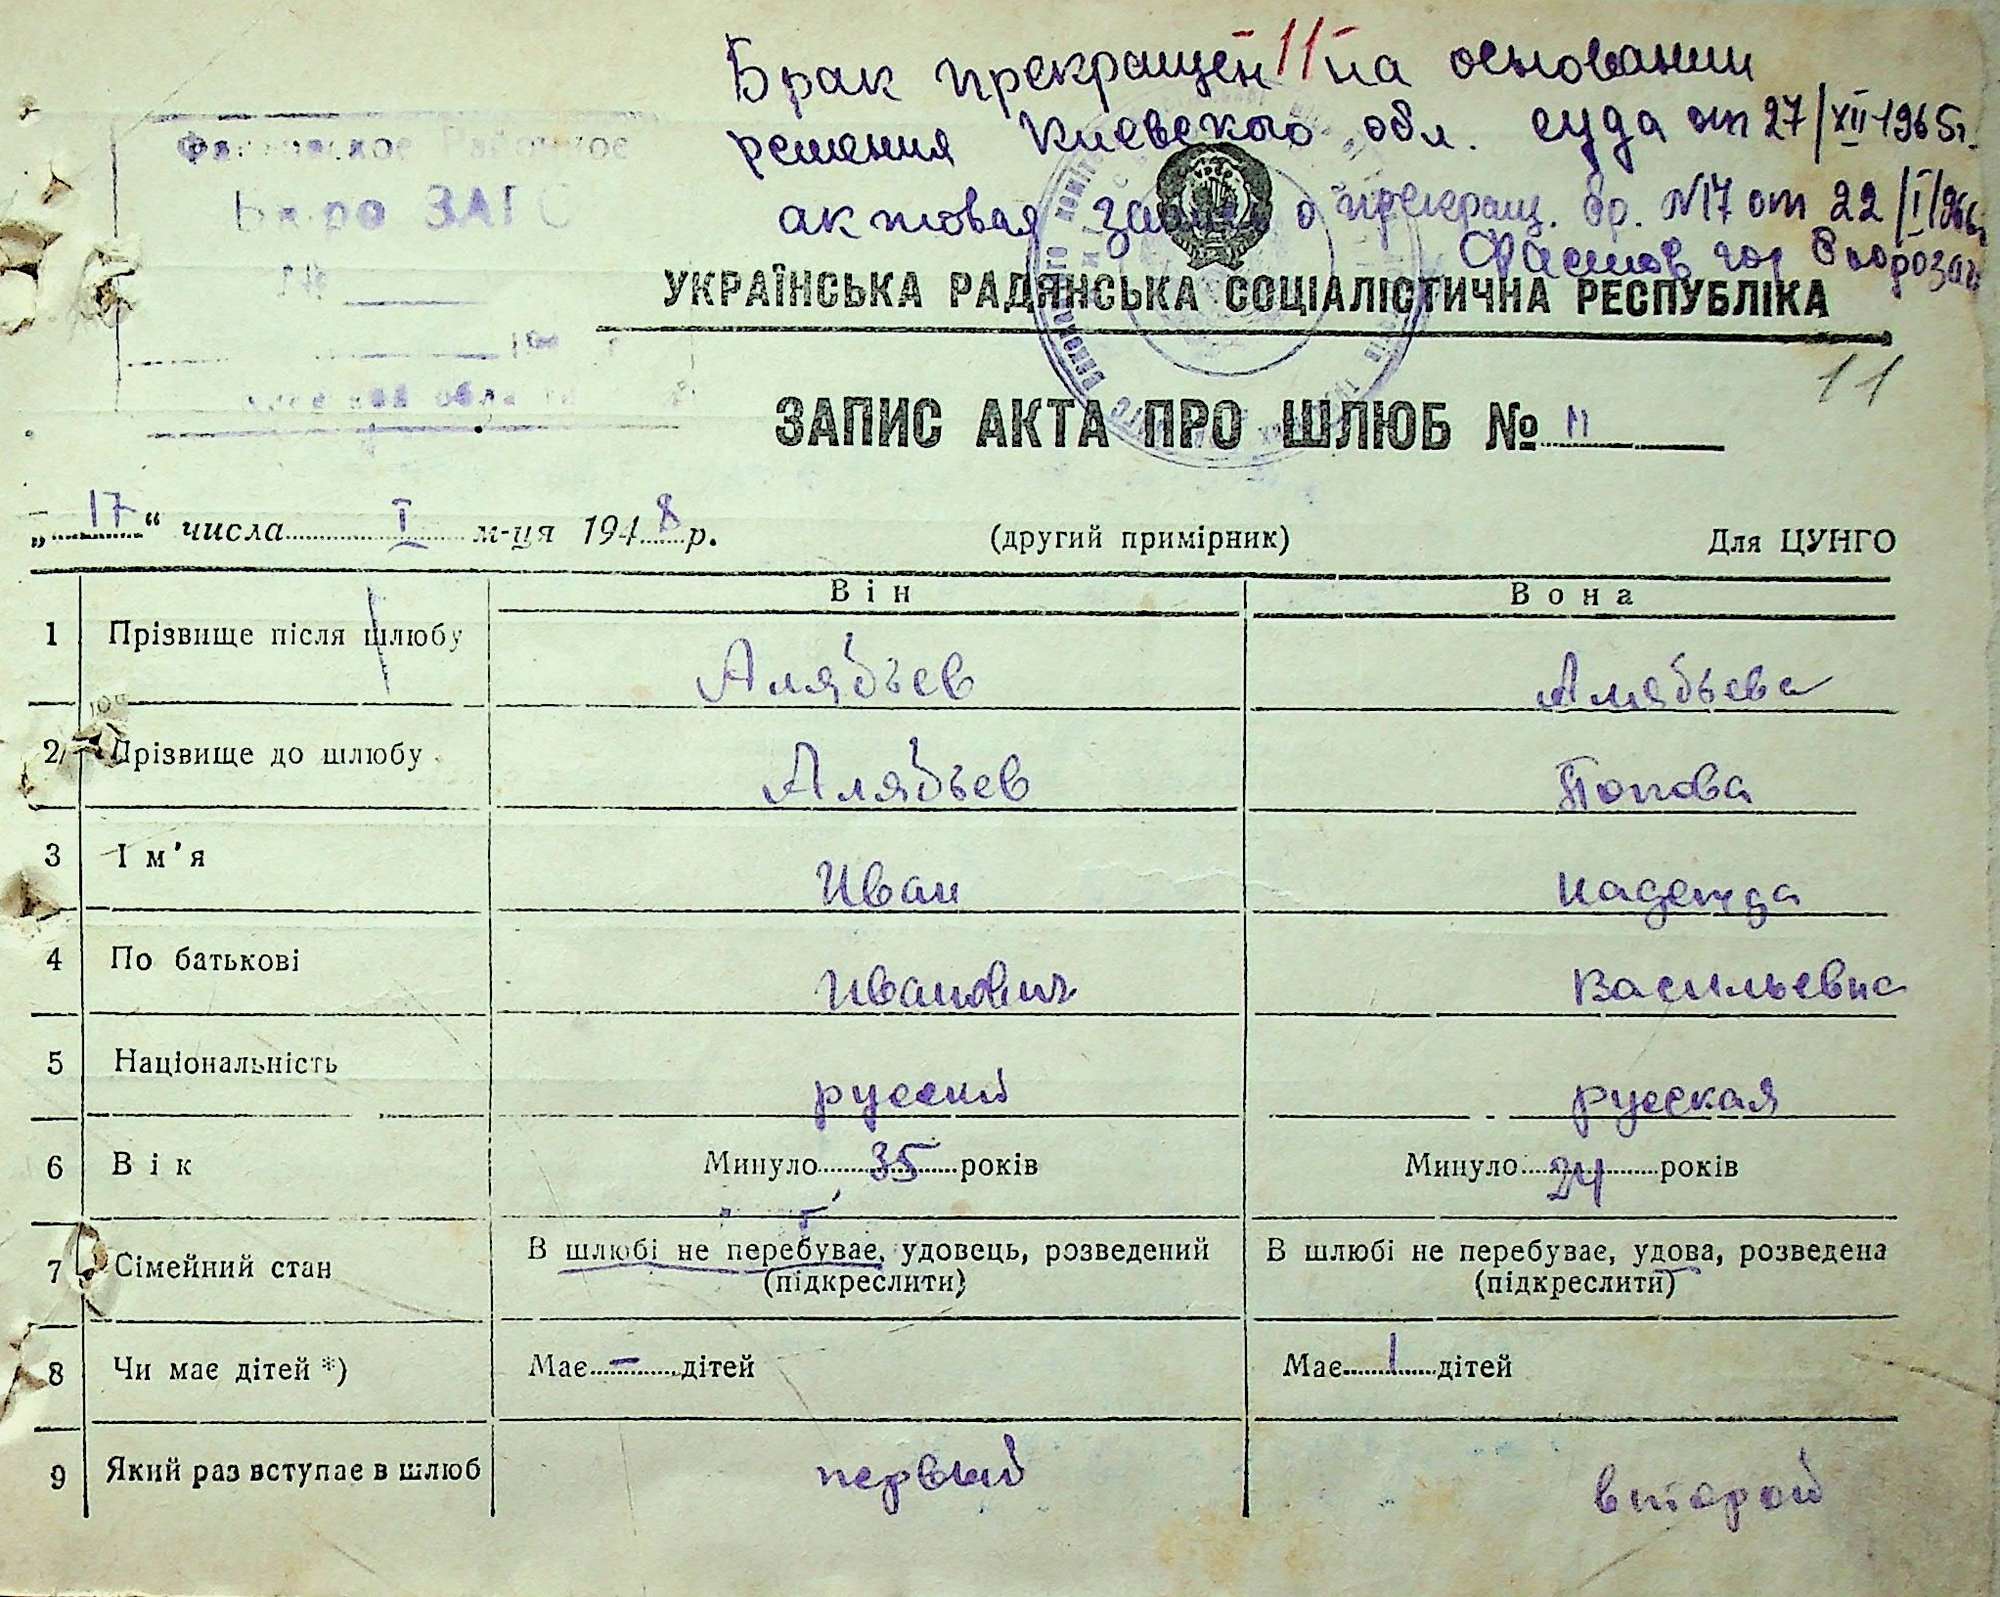 Брак прекращен 11 на основании
решения Киевского обл. суда от 27/XII-1965г.
актовая запись о прекращ. бр. №17 от 22/I/1966г.
Фастов гор бюро загс
Бюро ЗАГС
УКРАЇНСЬКА РАДЯНСЬКА СОЦІАЛІСТИЧНА РЕСПУБЛІКА
11
ЗАПИС АКТА ПРО ШЛЮБ № 11
„17“ числа I м-ця 1948 р. (другий примірник) Для ЦУНГО
Він Вона
1 Прізвище після шлюбу Алябьев Алябьева
2 Прізвище до шлюбу Алябьев Попова
3 Ім'я Иван Надежда
4 По батькові Иванович Васильевна
5 Національність русский русская
6 Вік Минуло 35 років Минуло 24 років
7 Сімейний стан В шлюбі не перебуває, удовець, розведений (підкреслити) В шлюбі не перебуває, удова, розведена (підкреслити)
8 Чи має дітей *) Має – дітей Має 1 дітей
9 Який раз вступає в шлюб первый второй